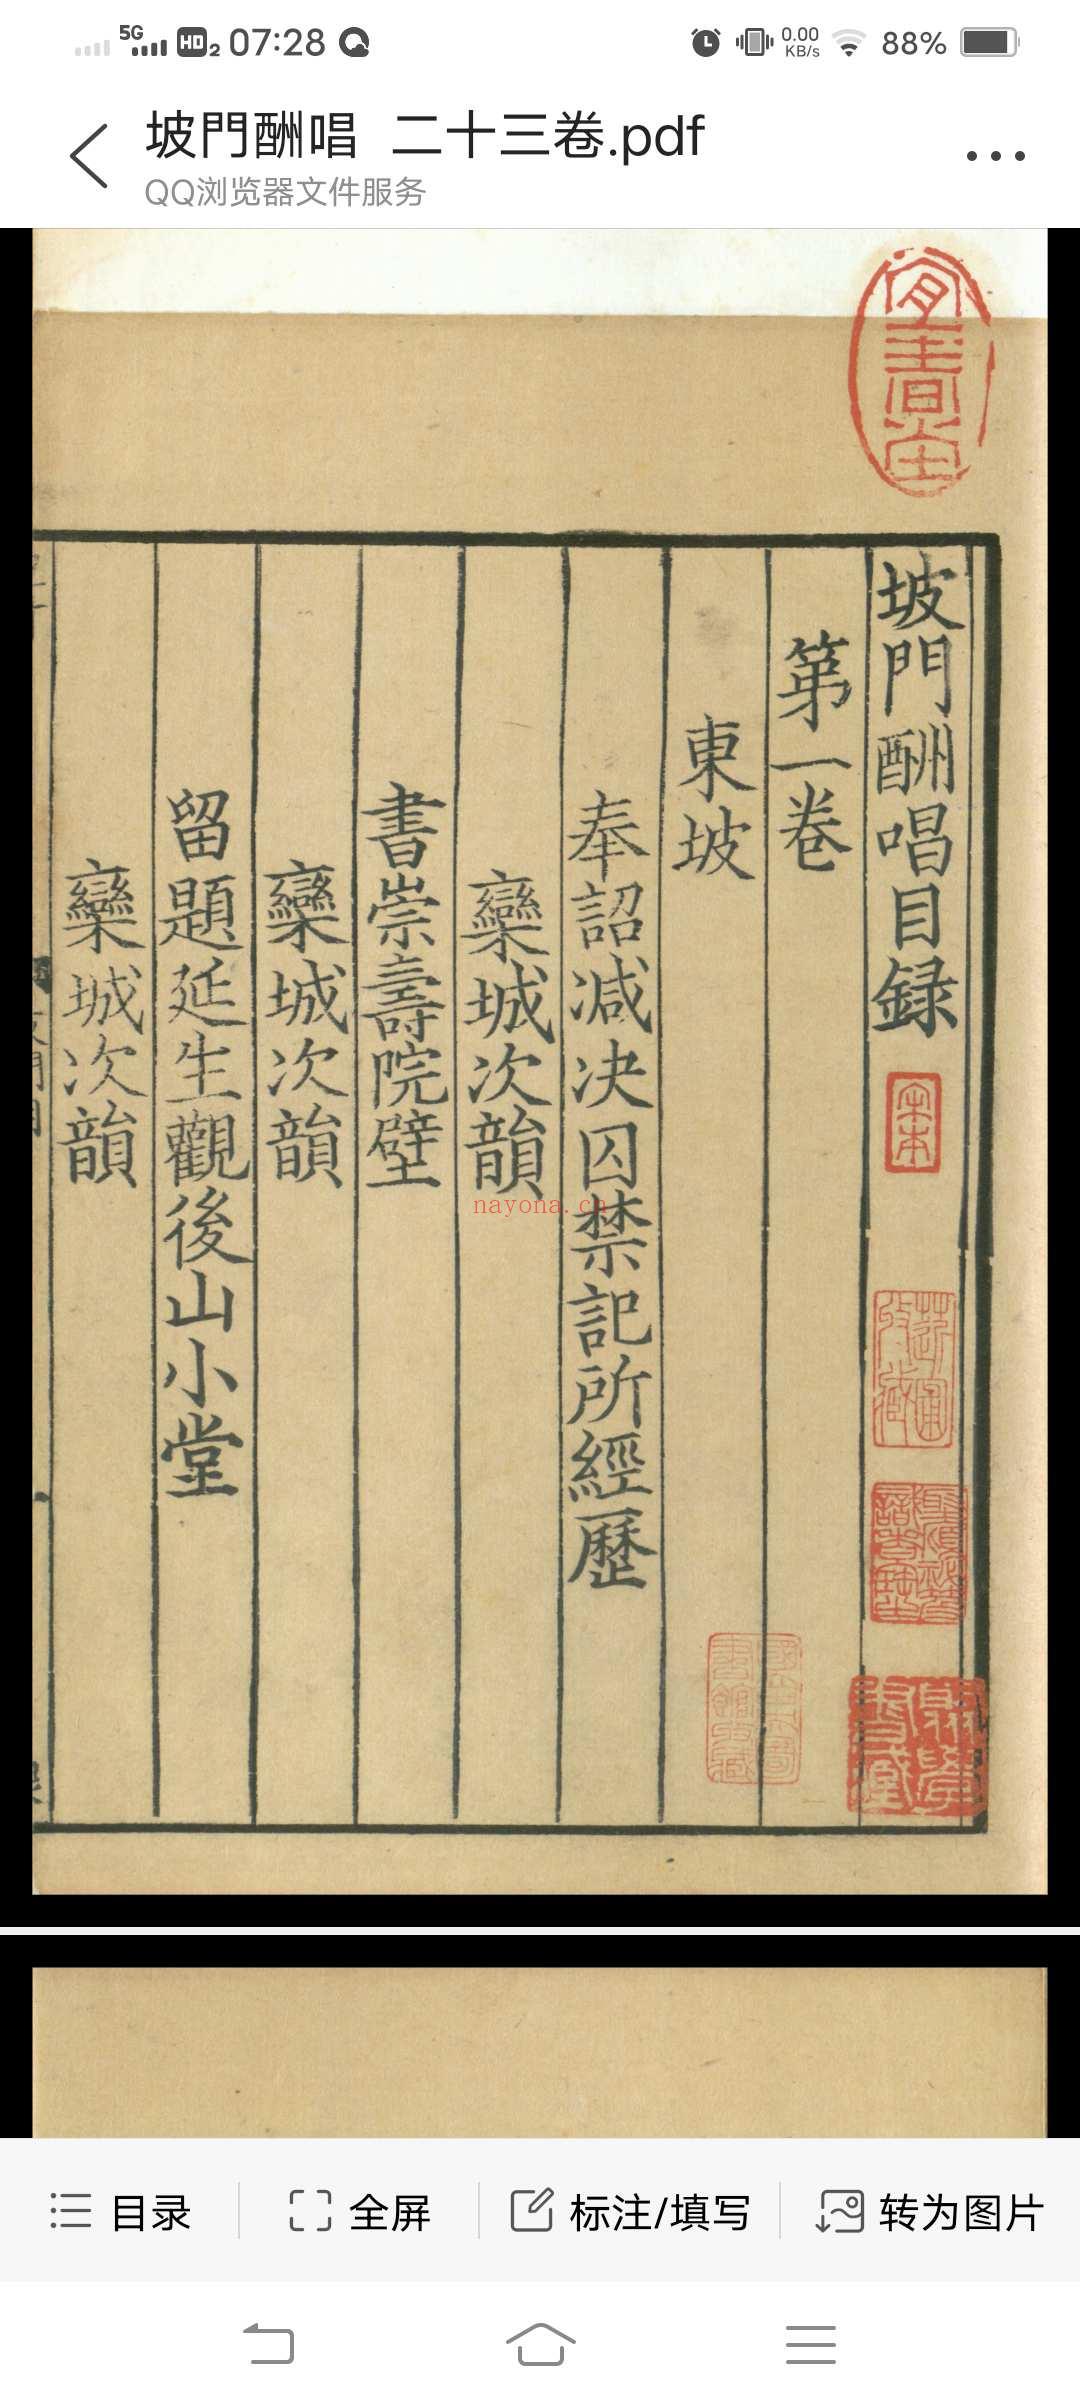 5G HD 2 07:28 0.00 KB/s 88%
坡門酬唱 二十三卷.pdf
QQ浏览器文件服务
坡門酬唱目録
宋本
第一卷
東坡
奉詔減決囚禁記所經歷
欒城次韻
書崇壽院壁
欒城次韻
留題延生觀後山小堂
欒城次韻
nayona.cn
目录
全屏
标注/填写
转为图片